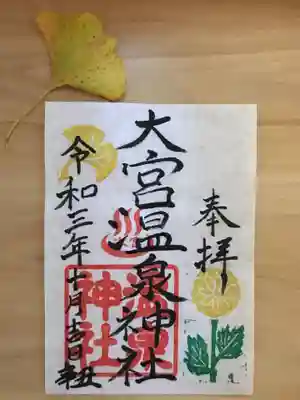 奉拝
大宮温泉神社
温泉
神社
令和三年十一月吉日